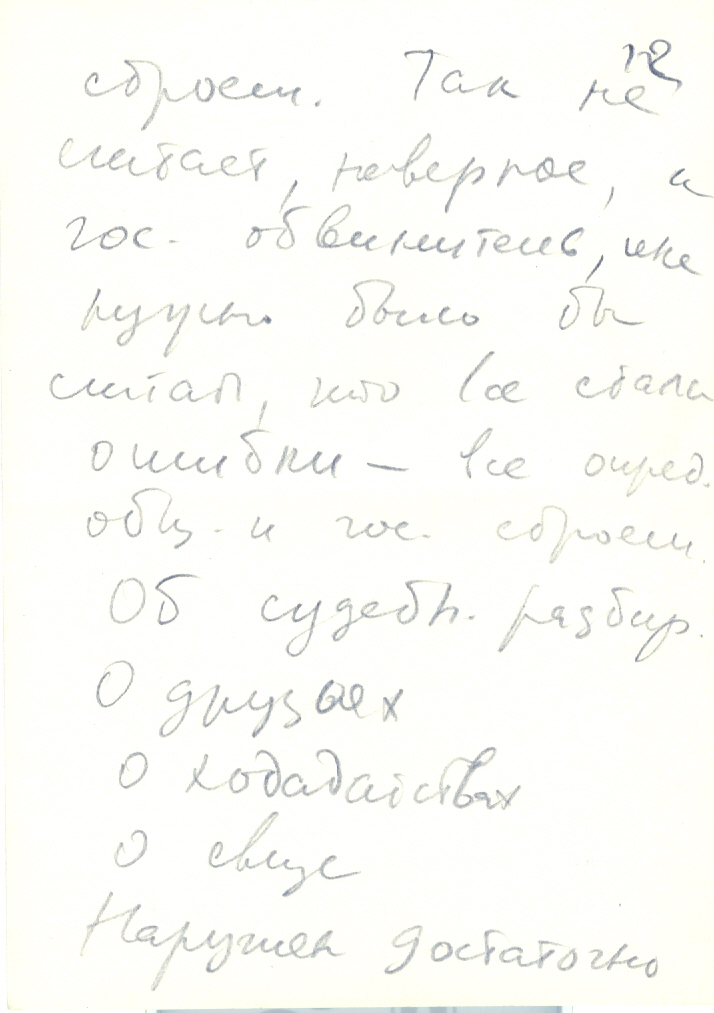 строем. Так не
считает, наверное, и
гос. обвинитель, ине
нужно было бы
считать, что все стали
ошибки — все опред.
общ. и гос. строем.
Об судебн. разбир.
О друзьях
О ходадайствах
О свид
Нарушен достаточно